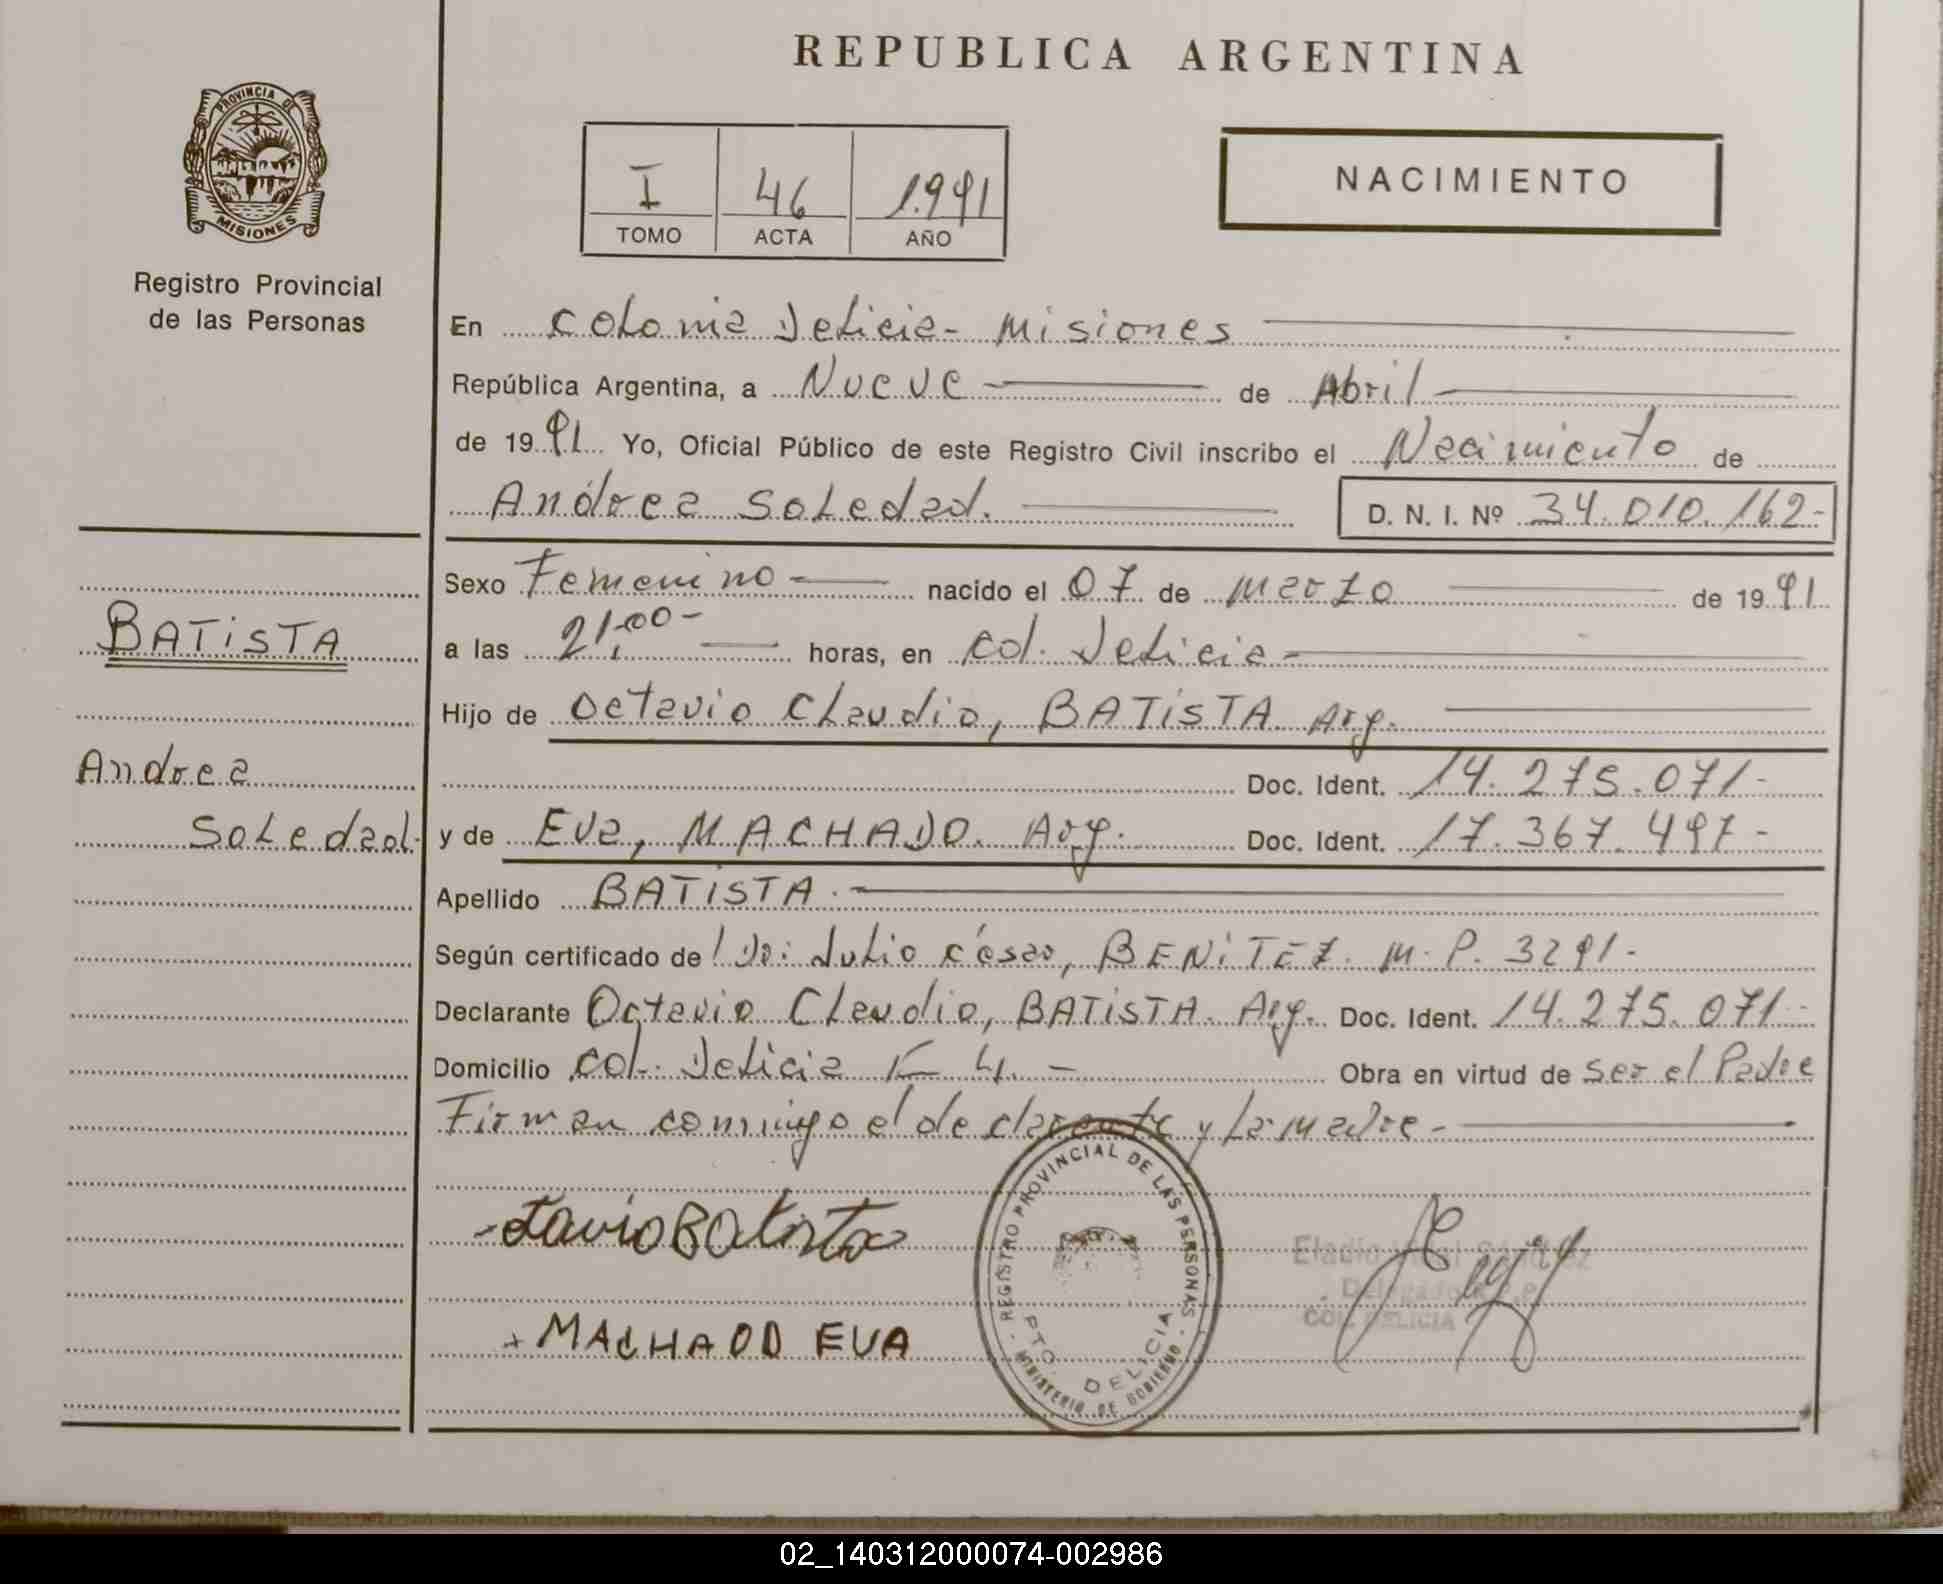 REPUBLICA ARGENTINA
PROVINCIA DE
MISIONES
Registro Provincial
de las Personas
I 46 1.991
TOMO ACTA AÑO
NACIMIENTO
En Colonia Delicia - Misiones
República Argentina, a Nueve de Abril
de 19 91 Yo, Oficial Público de este Registro Civil inscribo el Nacimiento de
Andrea Soledad. D. N. I. Nº 34.010.162-
Sexo Femenino nacido el 07 de Marzo de 19 91
BATISTA
a las 21,00- horas, en Col. Delicia-
Hijo de Octavio Claudio, BATISTA Arg.
Andrea
Doc. Ident. 14.275.071-
Soledad.
y de Eva, MACHADO. Arg. Doc. Ident. 17.367.497-
Apellido BATISTA.
Según certificado de Dr: Julio César, BENITEZ. M.P. 3291-
Declarante Octavio Claudio, BATISTA. Arg. Doc. Ident. 14.275.071-
Domicilio Col. Delicia K 4.- Obra en virtud de Ser el Padre
Firman conmigo el declarante y La madre-
REGISTRO PROVINCIAL DE LAS PERSONAS
PTO. DELICIA
MINISTERIO DE GOBIERNO
Batista
Eladio
Delegado
COL. DELICIA
+ MACHADO EVA
02_140312000074-002986